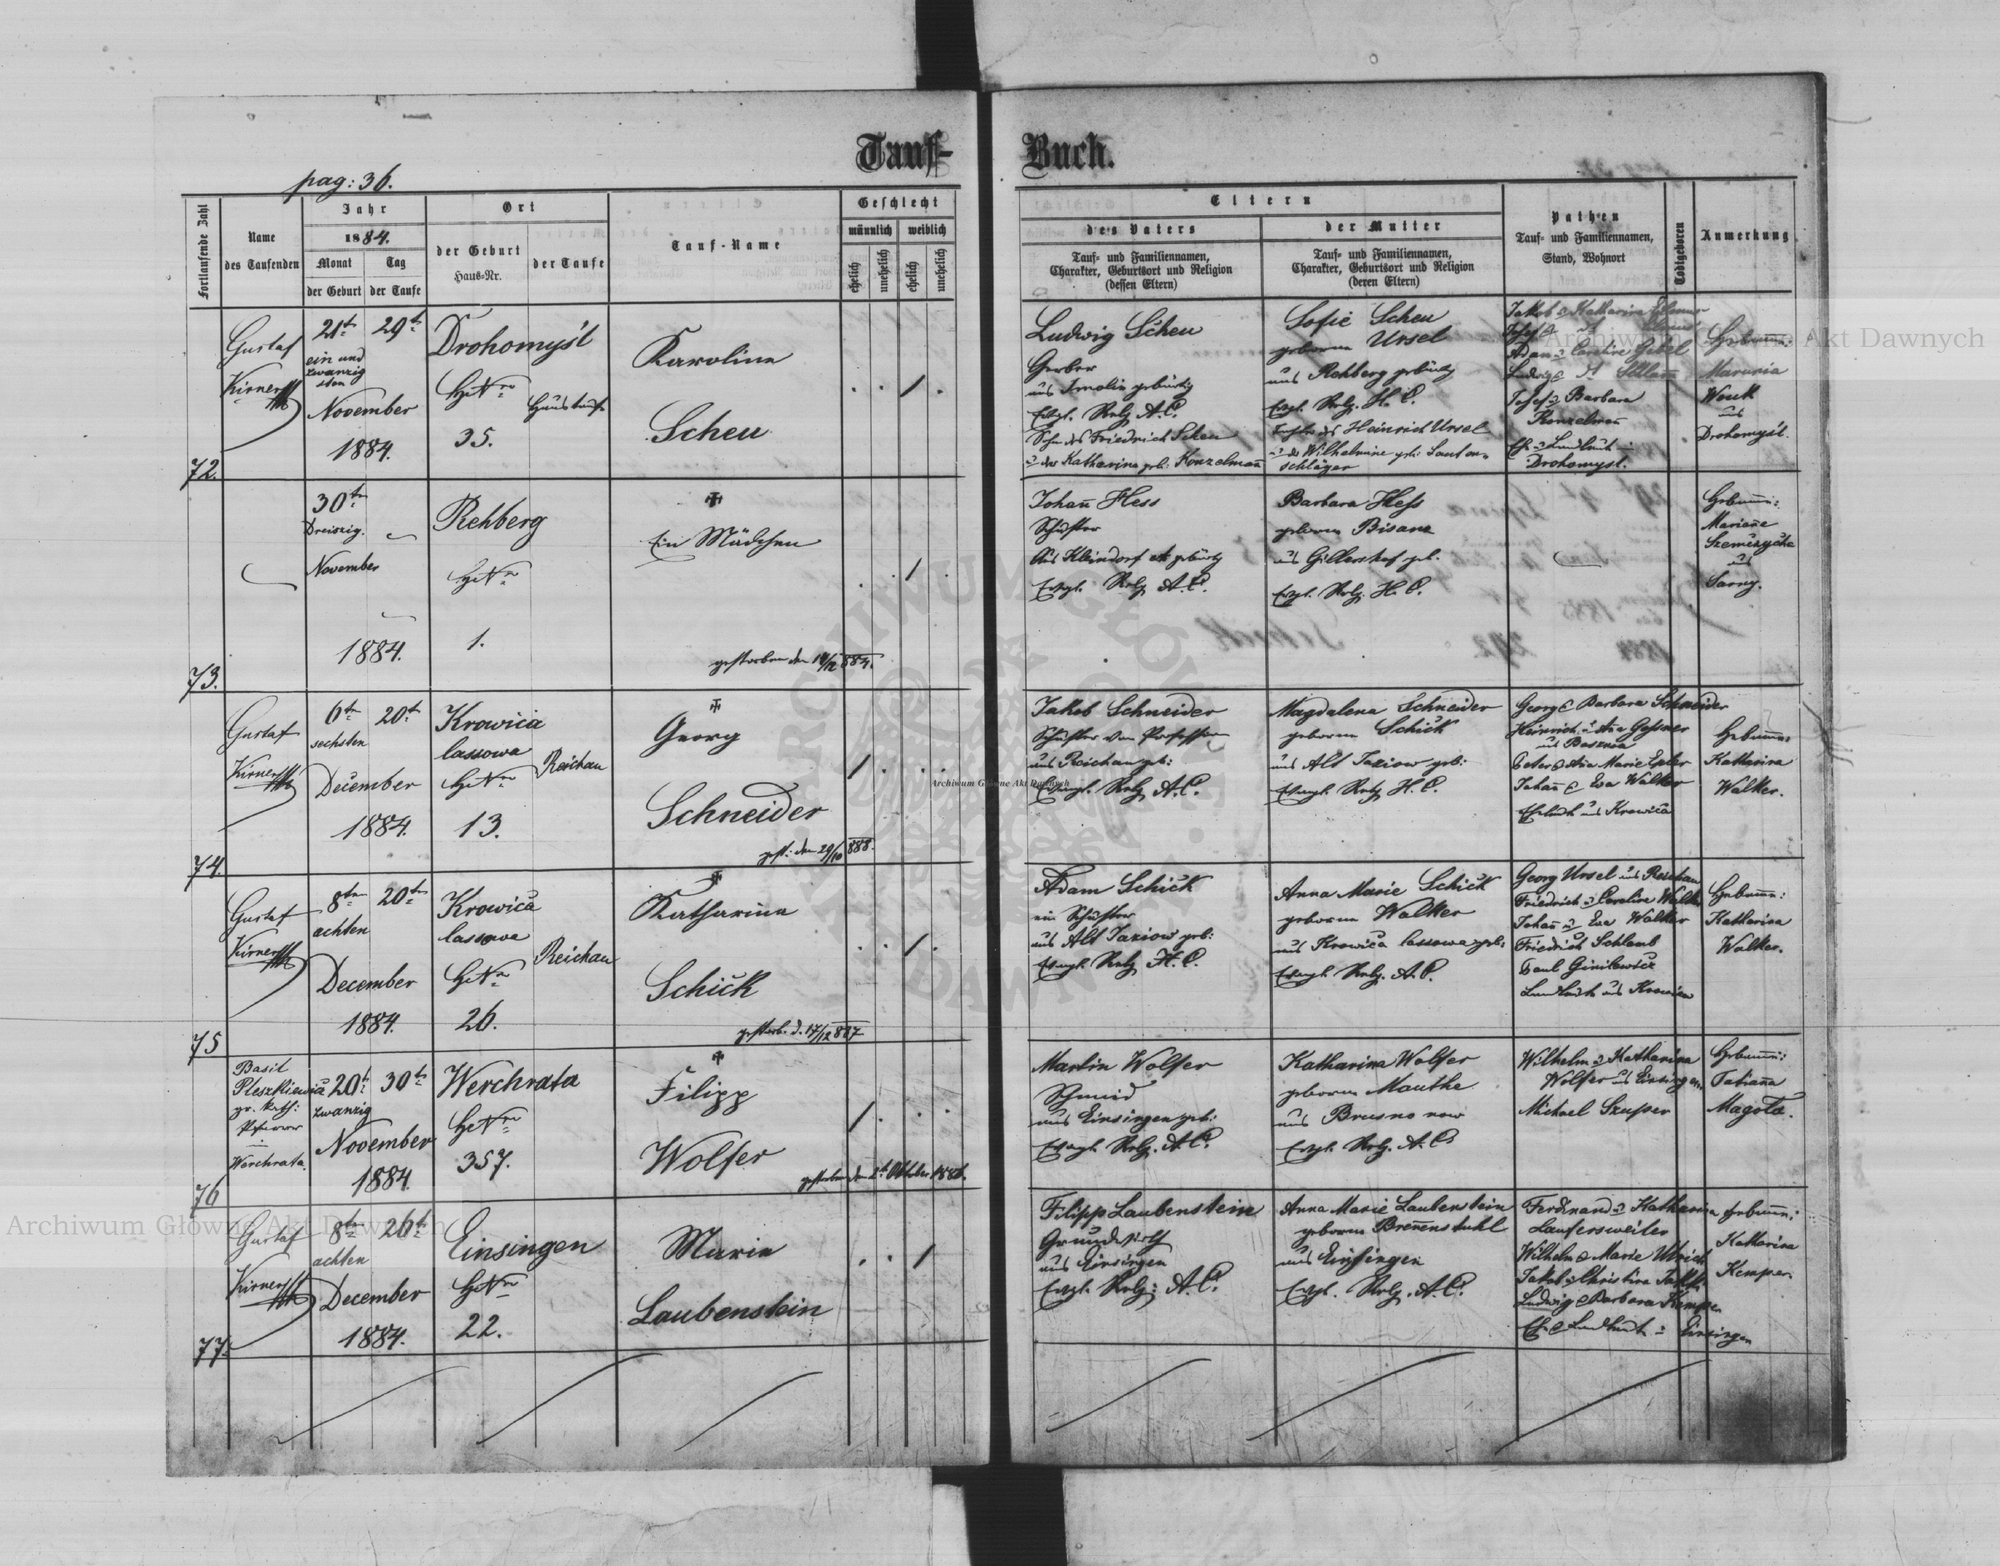 Tauf-
Buch.
pag: 36.
Fortlaufende Zahl
Name
des Taufenden
Jahr
1884.
Monat
Tag
der Geburt
der Taufe
Ort
der Geburt
Haus-Nr.
der Taufe
Tauf-Name
Geschlecht
männlich
weiblich
ehelich
unehelich
ehelich
unehelich
Eltern
des Vaters
Tauf- und Familiennamen,
Charakter, Geburtsort und Religion
(dessen Eltern)
der Mutter
Tauf- und Familiennamen,
Charakter, Geburtsort und Religion
(deren Eltern)
Pathen
Tauf- und Familiennamen,
Stand, Wohnort
Todtgeboren
Anmerkung
72.
Gustaf
Kirner
21t
ein und
zwanzig
sten
November
1884.
29t
Drohomyśl
HsNro
35.
Haustaufe
Karoline
Scheu
Ludwig Scheu
Gerber
aus Smolin gebürtig
Evgl. Relg. A.C.
Sohn des Friedrich Scheu
u der Katharina geb: Konzelmañ
Sofie Scheu
geborne Ursel
aus Rehberg gebürtig
Evgl. Relg. H. C.
Tochter des Heinrich Ursel
u der Wilhelmine geb:
schläger
Jakob & Katharina
Adam & Caroline Gebel
Josef u Barbara
Konzelmañ
Drohomysl.
Hebamme:
Marunia
Wouk
aus
Drohomyśl.
73.
30te
Dreiszig.
November
1884.
Rehberg
HsNro
1.
Ein Mädchen
gestorben den 14/12 884.
Johañ Hess
Schuster
Aus Kleindorf gebürtig
Evgl. Relg A.C.
Barbara Hess
geborne Bisanz
aus Gillershof geb.
Evgl. Relg. H. C.
Hebamme:
Mariañe
aus
Sarny.
74.
Gustaf
Kirner
6te
sechsten
December
1884.
20t
Krowica
lassowa
HsNro
13.
Reichau
Georg
Schneider
gest: den 29/10 888.
Jakob Schneider
Schuster von Profession
aus Reichau geb:
Evangl. Relg A.C.
Magdalena Schneider
geborne Schick
aus Alt Jaziow geb:
Evangl. Relg H. C.
Georg & Barbara Schneider
Heinrich u Aña Gessner
Johañ & Eva Walker
Eheleute aus Krowica
Hebamme:
Katharina
Walker.
75
Gustaf
Kirner
8ten
achten
December
1884.
20te
Krowica
lassowa
HsNro
26.
Reichau
Katharina
Schick
gestorb. d. 17/12 887
Adam Schick
ein Schuster
aus Alt Jaziow geb:
Evangl. Relg H. C.
Anna Marie Schick
geborne Walker
aus Krowica lassowa geb:
Evangl. Relg. A.C.
Georg Ursel aus Reichau
Friedrich u Caroline Walker
Johañ u Eva Walker
Friedrich Schlaub
Paul Ginilewicz
Landleute aus Krowica
Hebamme:
Katharina
Walker.
76
Basil
Pleszkiewicz
gr. kath:
Pfarrer
in
Werchrata.
20t
zwanzig
November
1884.
30te
Werchrata
HsNro
357.
Filipp
Wolfer
gestorben den 2t Oktober 1886.
Martin Wolfer
Schmid
aus Einsingen geb:
Evangl. Relg. A.C.
Katharina Wolfer
geborne Mauthe
aus Brusno now
Evgl. Relg. A.C.
Wilhelm u Katharina
Wolfer aus Einsingen.
Michael Szuper
Hebamme:
Tatiañna
Magota.
77.
Gustaf
Kirner
8te
achten
December
1884.
26te
Einsingen
HsNro
22.
Maria
Laubenstein
Filipp Laubenstein
Grundwirth
aus Einsingen
Evgl. Relg: A.C.
Anna Marie Laubenstein
geborne Breñenstuhl
aus Einsingen
Evgl. Relg. A.C.
Ferdinand u Katharina
Laufersweiler
Wilhelm & Marie Ulrich
Ludwig & Barbara Kemper
Einsingen
Hebamme:
Katharina
Kemper.
Archiwum Główne Akt Dawnych
Archiwum Główne Akt Dawnych
Archiwum Główne Akt Dawnych